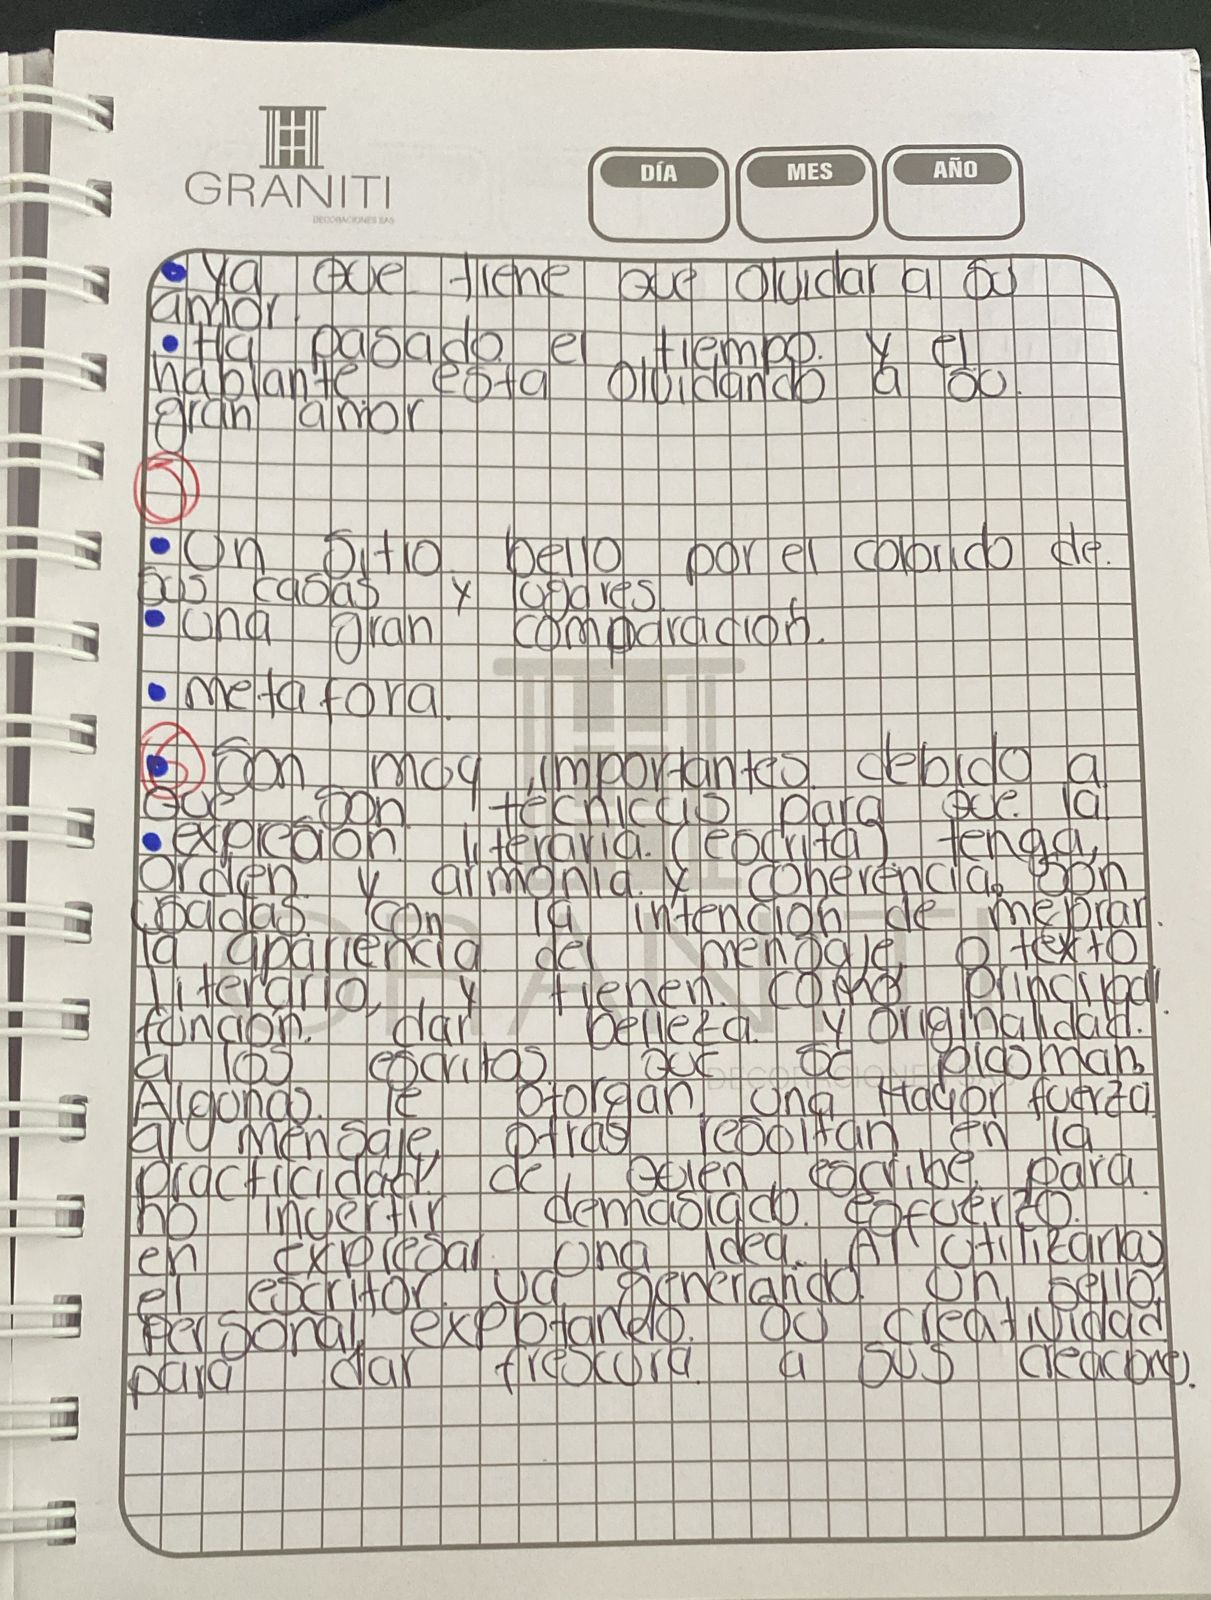 GRANITI
DECORACIONES SAS
DÍA MES AÑO
• Ya que tiene que olvidar a su
amor.
• Ha pasado el tiempo. y el
hablante esta olvidando a su.
gran amor
5
• Un sitio bello por el colorido de.
sus casas y lugares.
• una gran comparación.
• metafora.
6 Son muy importantes. debido a
que son tecnicas para que la
• expresion literaria. (escrita) tenga,
orden y armonia y coherencia, son
usadas con la intención de mejorar.
la apariencia del mensaje o texto
literario, y tienen. como principal
funcion. dar belleza y originalidad.
a los escritos que se plasman.
Algunas. le otorgan una Mayor fuerza
al mensaje, otras resultan en la
practicidad, de quien escribe para
no invertir demasiado. esfuerzo.
en expresar una idea. Al utilizarlas
el escritor va generando un sello
personal, explotando. su creatividad
para dar frescura a sus creaciones.